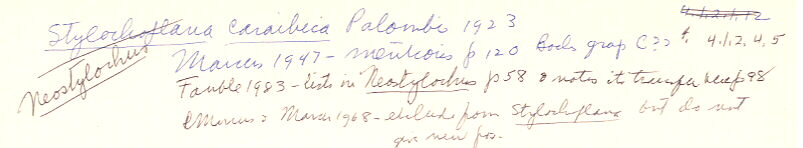 Stylochoplana caraibica Palombi 1923 4.1.2.1.12
Neostylochus
Marcus 1947 - mentions p 120 Bocks grop C?? 4.1.2.4.5
Faubel 1983 - lists in Neostylochus p58 & notes its transfer p 98
E Marcus & Marcus 1968 - exclude from Stylochoplana but do not
give new pos.